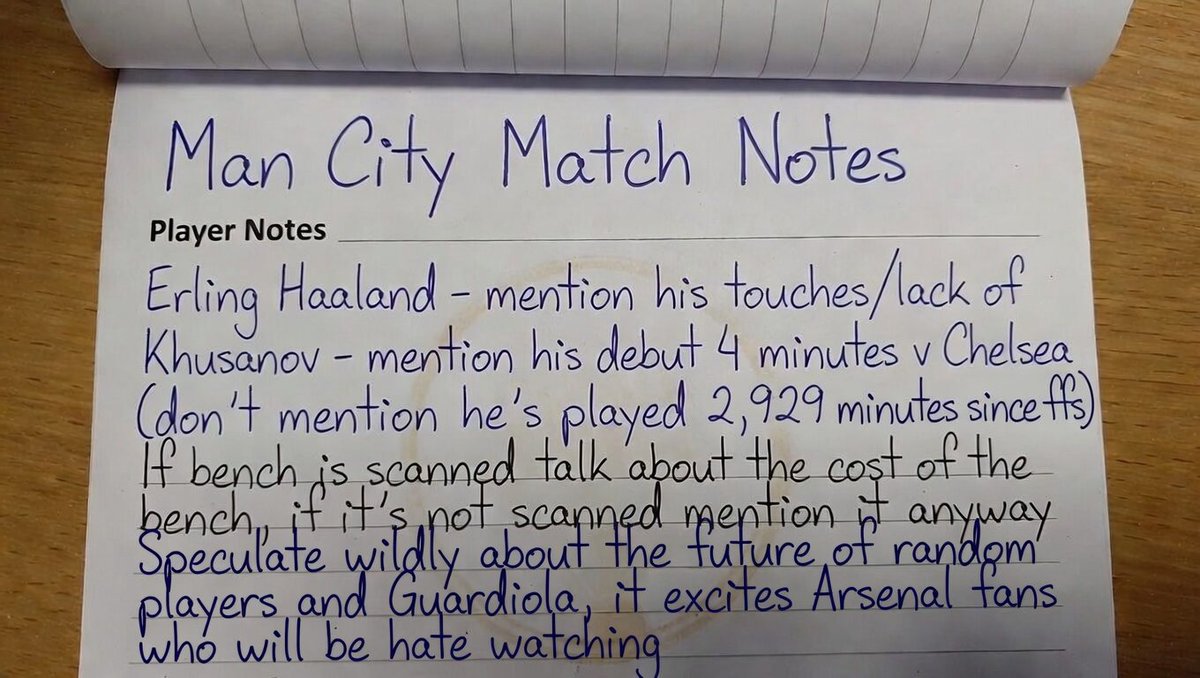 Man City Match Notes
Player Notes
Erling Haaland - mention his touches/lack of
Khusanov - mention his debut 4 minutes v Chelsea
(don't mention he's played 2,929 minutes since ffs)
If bench is scanned talk about the cost of the
bench, if it's not scanned mention it anyway
Speculate wildly about the future of random
players and Guardiola, it excites Arsenal fans
who will be hate watching